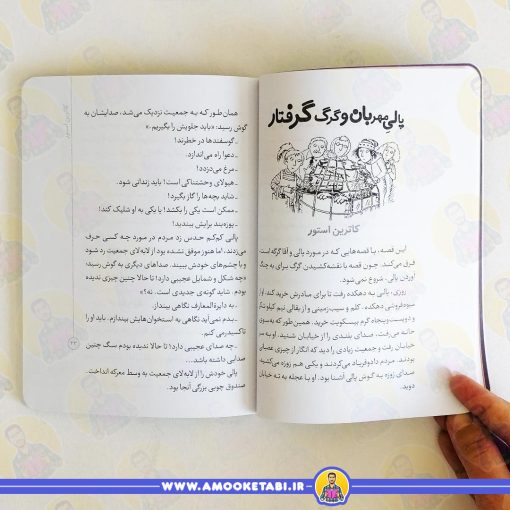 پالی مهربان و گرگ گرفتار
کاترین استور
این قصه، با قصه‌هایی که در مورد پالی و آقا گرگه است
فرق می‌کند. چون قصه با نقشه‌کشیدن گرگ برای به چنگ
آوردن پالی، شروع نمی‌شود.
روزی، پالی به دهکده رفت تا برای مادرش خرید کند. او از
سبزی‌فروشی دهکده، کلم و سیب‌زمینی و از بقالی نیم کیلو شکر
و دویست‌وپنجاه گرم بیسکویت خرید. همین‌طور که به‌سوی
خانه می‌رفت، صدای بلندی را از خیابان شنید. او به
خیابان رفت و جمعیت زیادی را دید که انگار از چیزی عصبانی
بودند. مردم دادوفریاد می‌کردند و یکی هم زوزه می‌کشید.
صدای زوزه به گوش پالی آشنا بود. او با عجله به ته خیابان
دوید.
همان‌طور که به جمعیت نزدیک می‌شد، صدایشان به
گوش رسید: «باید جلویش را بگیریم.»
ـ گوسفندها در خطرند!
ـ دعوا راه می‌اندازد.
ـ مرغ می‌دزدد!
ـ هیولای وحشتناکی است! باید زندانی شود.
ـ شاید بچه‌ها را گاز بگیرد!
ـ ممکن است یکی را بکشد! با یکی به او شلیک کند!
ـ پوزه‌بند برایش ببندید!
پالی کم‌کم حدس زد مردم در مورد چه کسی حرف
می‌زنند، اما هنوز موفق نشده بود از لابه‌لای جمعیت رد شود
و با چشم‌های خودش ببیند. صداهای دیگری به گوش رسید:
«چه شکل و شمایل عجیبی دارد! تا حالا چنین چیزی ندیده
بودم. شاید گونه‌ی جدیدی است. نه؟»
ـ به دایرةالمعارف نگاهی بینداز.
ـ بدم نمی‌آید نگاهی به استخوان‌هایش بیندازم. باید او را
تاکسیدرمی کنم.
ـ چه صدای عجیبی دارد! تا حالا ندیده بودم سگ چنین
صدایی داشته باشد...
پالی خودش را از لابه‌لای جمعیت به وسط معرکه انداخت.
صندوق چوبی بزرگی آنجا بود.
۲۳
WWW.AMOOKETABI.IR